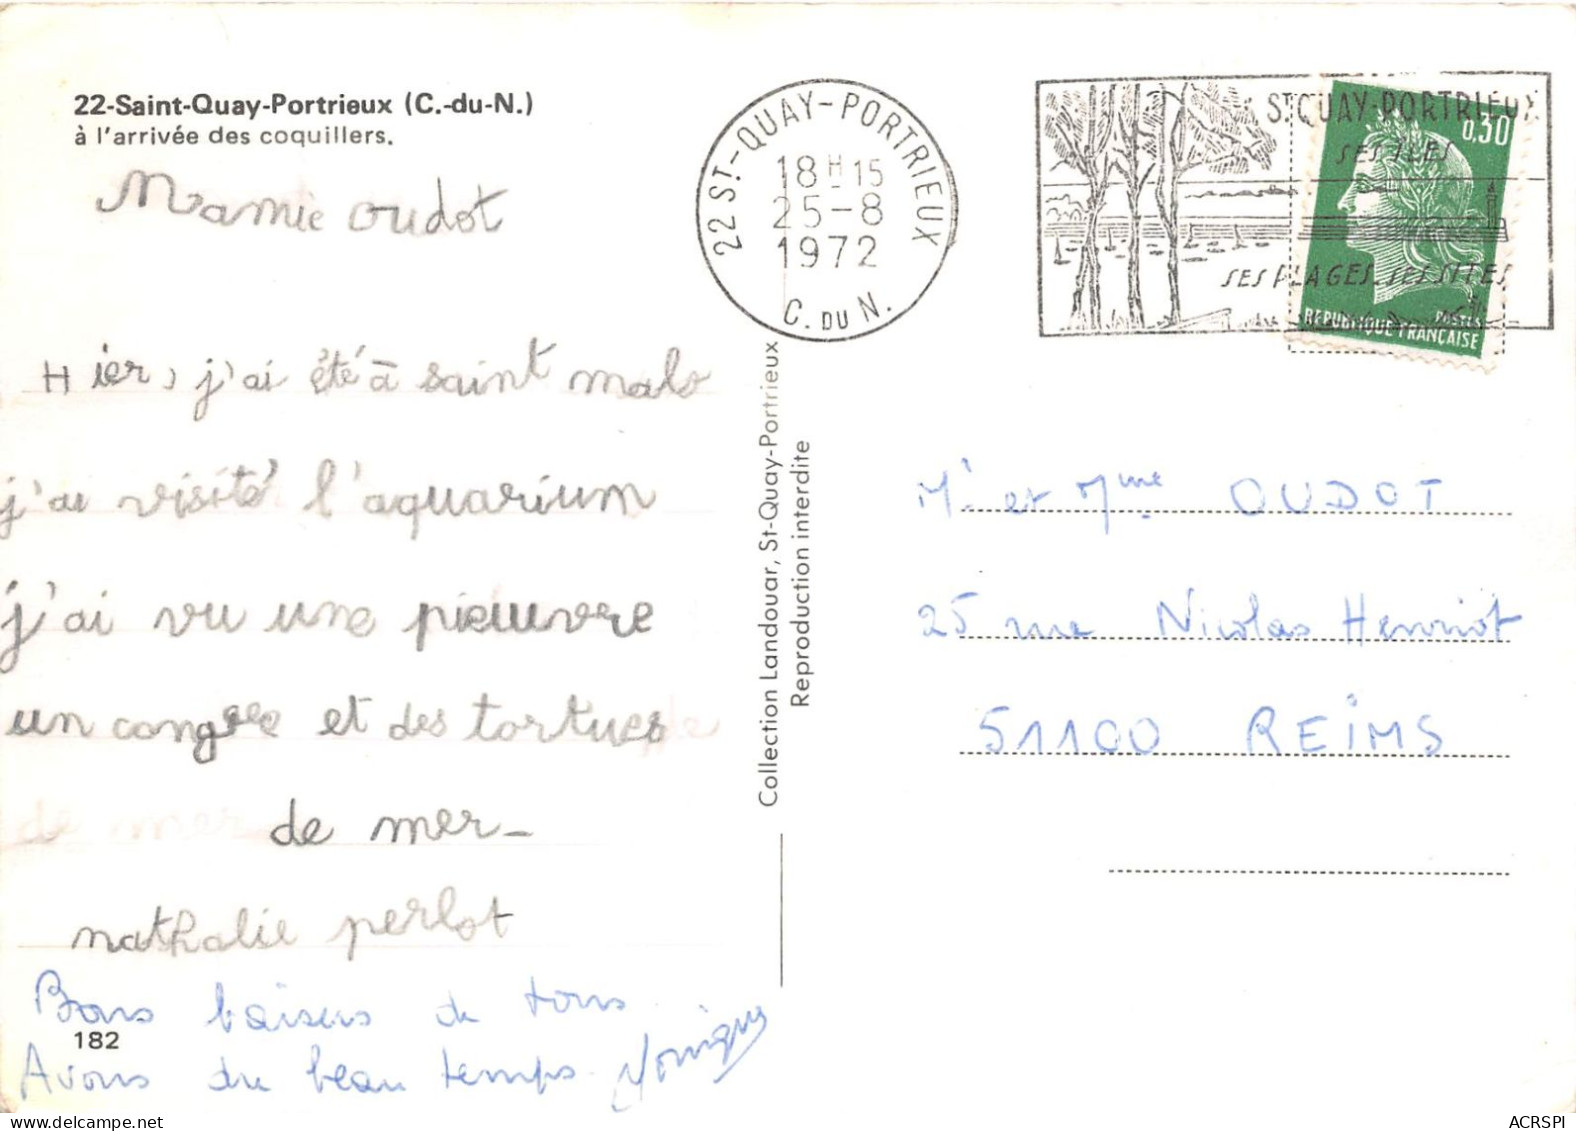 22-Saint-Quay-Portrieux (C.-du-N.)
à l'arrivée des coquillers.
Mamie oudot
Hier, j'ai été à saint malo
j'ai visité l'aquarium
j'ai vu une pieuvre
un congre et des tortues
de mer-
nathalie perlot
Bons baisers de tous
182
Avons du beau temps. Monique
Collection Landouar, St-Quay-Portrieux
Reproduction interdite
22 ST-QUAY-PORTRIEUX
18H15
25-8
1972
C. DU N.
ST QUAY-PORTRIEUX
SES ILES
SES PLAGES_SES SITES
0,30
POSTES
REPUBLIQUE FRANÇAISE
Mr et Mme OUDOT
25 rue Nicolas Henriot
51100 REIMS
ACRSPI